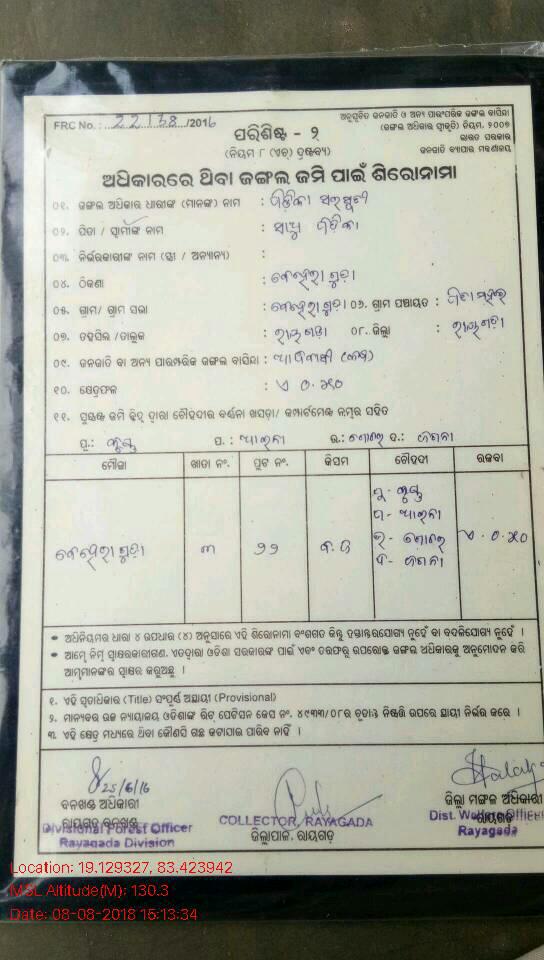 FRC No. : 22138 /2016
ଅନୁସୂଚିତ ଜନଜାତି ଓ ଅନ୍ୟ ପାରଂପରିକ ଜଙ୍ଗଲ ବାସିନ୍ଦା
(ଜଙ୍ଗଲ ଅଧିକାର ସ୍ୱୀକୃତି) ନିୟମ, ୨୦୦୭
ଭାରତ ସରକାର
ଜନଜାତି ବ୍ୟାପାର ମନ୍ତ୍ରଣାଳୟ
ପରିଶିଷ୍ଟ - ୨
(ନିୟମ ୮ (ଏଚ୍) ଦ୍ରଷ୍ଟବ୍ୟ)
ଅଧିକାରରେ ଥିବା ଜଙ୍ଗଲ ଜମି ପାଇଁ ଶିରୋନାମା
୦୧. ଜଙ୍ଗଲ ଅଧିକାର ଧାରୀଙ୍କ (ମାନଙ୍କ) ନାମ :
୦୨. ପିତା / ସ୍ୱାମୀଙ୍କ ନାମ :
୦୩. ନିର୍ଭରକାରୀଙ୍କ ନାମ (ସ୍ତ୍ରୀ / ଅନ୍ୟାନ୍ୟ) :
୦୪. ଠିକଣା : କେହେରାଗୁଡ଼ା
୦୫. ଗ୍ରାମ/ ଗ୍ରାମ ସଭା : କେହେରାଗୁଡ଼ା ୦୬. ଗ୍ରାମ ପଞ୍ଚାୟତ :
୦୭. ତହସିଲ /ତାଲୁକ : ରାୟଗଡ଼ା ୦୮. ଜିଲ୍ଲା : ରାୟଗଡ଼ା
୦୯. ଜନଜାତି ବା ଅନ୍ୟ ପାରମ୍ପରିକ ଜଙ୍ଗଲ ବାସିନ୍ଦା : ଆଦିବାସୀ
୧୦. କ୍ଷେତ୍ରଫଳ : ଏ ୦.୫୦
୧୧. ସୁସ୍ପଷ୍ଟ ଜମି ଚିହ୍ନ ଦ୍ୱାରା ଚୌହଦୀର ବର୍ଣ୍ଣନା ଖସଡ଼ା/ କମ୍ପାର୍ଟମେଣ୍ଟ ନମ୍ବର ସହିତ
ପୂ.: ପ. : ଉ.: ଦ.:
ମୌଜା ଖାତା ନଂ. ପ୍ଲଟ ନଂ. କିସମ ଚୌହଦୀ ରକବା
କେହେରାଗୁଡ଼ା ୩ ୨୨ ଏ.୦.୫୦
• ଅଧିନିୟମର ଧାରା ୪ ଉପଧାରା (୪) ଅନୁସାରେ ଏହି ଶିରୋନାମା ବଂଶଗତ କିନ୍ତୁ ହସ୍ତାନ୍ତରଯୋଗ୍ୟ ନୁହେଁ ବା ବଦଳିଯୋଗ୍ୟ ନୁହେଁ ।
• ଆମ୍ଭେ ନିମ୍ନ ସ୍ୱାକ୍ଷରକାରୀଗଣ, ଏତଦ୍ୱାରା ଓଡିଶା ସରକାରଙ୍କ ପାଇଁ ଏବଂ ତରଫରୁ ଉପରୋକ୍ତ ଜଙ୍ଗଲ ଅଧିକାରକୁ ଅନୁମୋଦନ କରି
ଆମ୍ଭମାନଙ୍କର ସ୍ୱାକ୍ଷର କରୁଅଛୁ ।
୧. ଏହି ସ୍ୱତ୍ୱାଧିକାର (Title) ସଂପୂର୍ଣ୍ଣ ଅସ୍ଥାୟୀ (Provisional)
୨. ମାନ୍ୟବର ଉଚ୍ଚ ନ୍ୟାୟାଳୟ ଓଡିଶାଙ୍କ ରିଟ୍ ପେଟିସନ କେସ ନଂ. ୪୯୩୩/୦୮ର ଚୂଡାନ୍ତ ନିଷ୍ପତ୍ତି ଉପରେ ସ୍ଥାୟୀ ନିର୍ଭର କରେ ।
୩. ଏହି କ୍ଷେତ୍ର ମଧ୍ୟରେ ଥିବା କୌଣସି ଗଛ କଟାଯାଇ ପାରିବ ନାହିଁ ।
25/6/16
ବନଖଣ୍ଡ ଅଧିକାରୀ
ରାୟଗଡ଼ ବନଖଣ୍ଡ
Divisional Forest Officer
Rayagada Division
COLLECTOR, RAYAGADA
ଜିଲ୍ଲାପାଳ, ରାୟଗଡ଼
ଜିଲ୍ଲା ମଙ୍ଗଳ ଅଧିକାରୀ
ରାୟଗଡ଼
Dist. Welfare Officer
Rayagada
Location: 19.129327, 83.423942
MSL Altitude(M): 130.3
Date: 08-08-2018 15:13:34